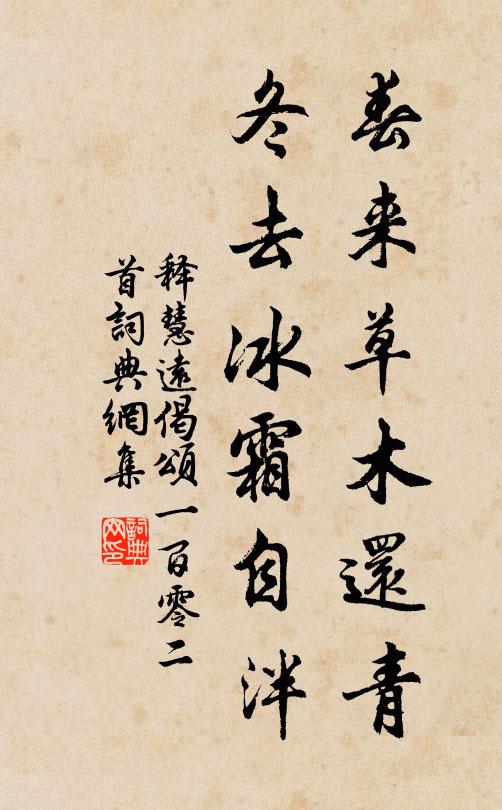 春来草木還青
冬去冰霜自泮
释慧遠偈頌一百零二
首詞典網集
詞典网印